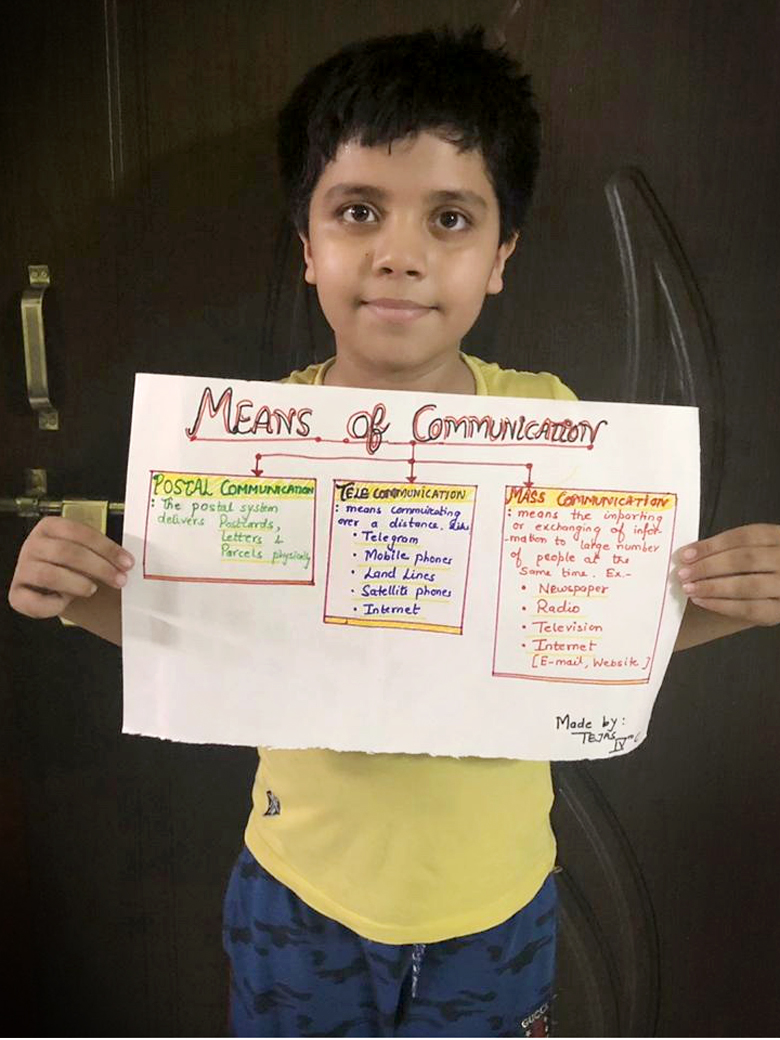 MEANS of COMMUNICATION
POSTAL COMMUNICATION
: The postal system
delivers Postcards,
Letters &
Parcels physically
TELE COMMUNICATION
: means commuicating
over a distance. like
• Telegram
• Mobile phones
• Land Lines
• Satellite phones
• Internet
MASS COMMUNICATION
: means the imparting
or exchanging of infor-
-mation to large number
of people at the
same time. Ex-
• Newspaper
• Radio
• Television
• Internet
[E-mail, Website]
Made by:
TEJAS
IV
GUCCI